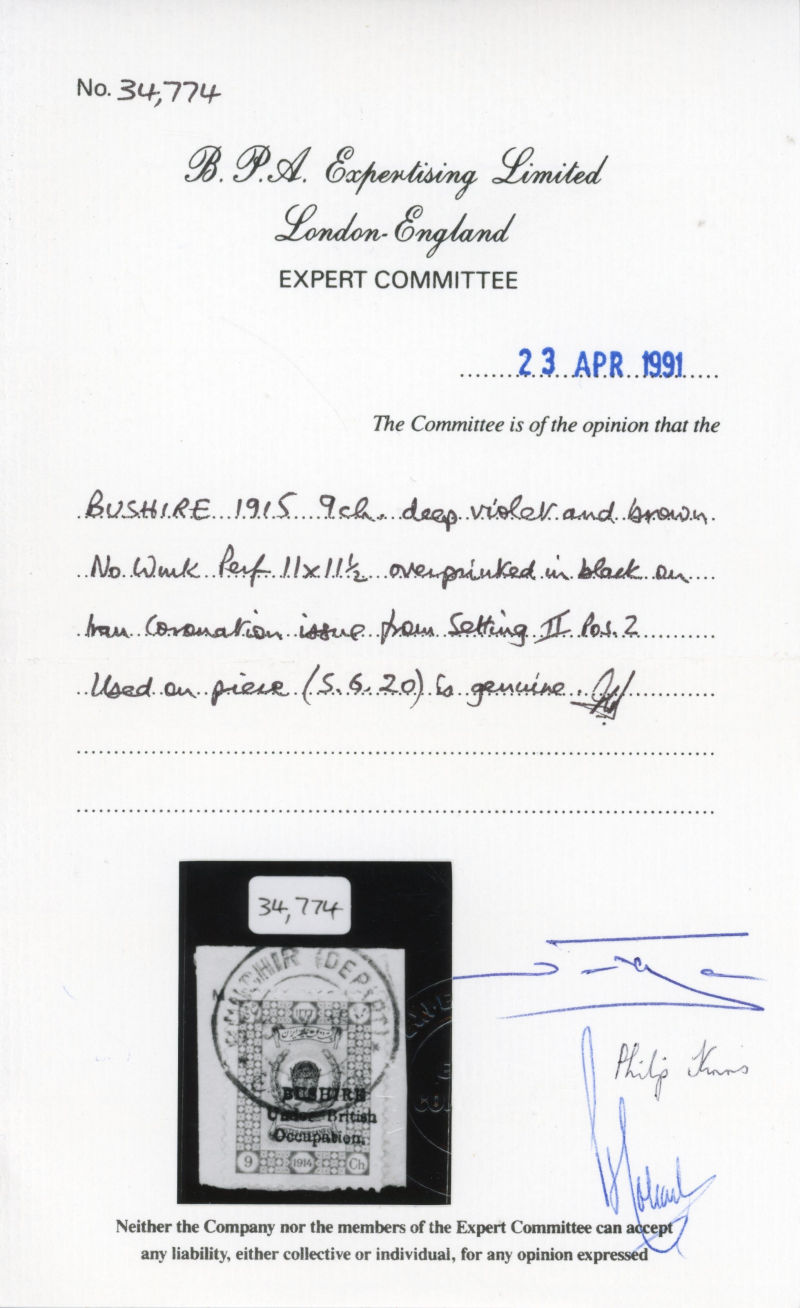 No. 34,774
B.P.A. Expertising Limited
London-England
EXPERT COMMITTEE
23 APR 1991
The Committee is of the opinion that the
BUSHIRE 1915 9ch. deep violet and brown
No Wmk Perf 11x11½ overprinted in black on
Iran Coronation issue from Setting II Pos. 2
Used on piece (5.6.20) is genuine.
34,774
(DEPART)
BUSHIRE
Under British
Occupation.
9 1914 Ch
Philip
Neither the Company nor the members of the Expert Committee can accept
any liability, either collective or individual, for any opinion expressed